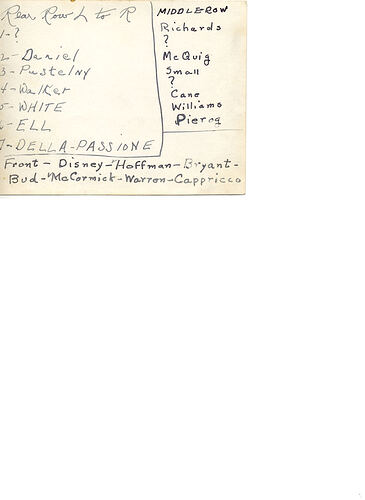 Rear Row L to R
1-?
2- Daniel
3- Pustelny
4- Walker
5- WHITE
6- ELL
7- DELLA-PASSIONE
MIDDLE ROW
Richards
?
McQuig
Small
?
Cane
Williams
Pierog
Front - Disney - Hoffman - Bryant -
Bud - McCormick - Warren - Cappricco